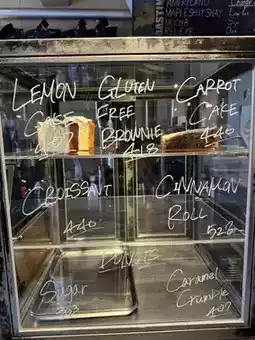 AMERICANO
MOCHA
LEMON
CAKE
GLUTEN
FREE
BROWNIE
4.18
CARROT
CAKE
4.40
CROISSANT
4.40
CINNAMON
ROLL
5.28
DONUTS
Sugar
3.03
Caramel
Crumble
4.07